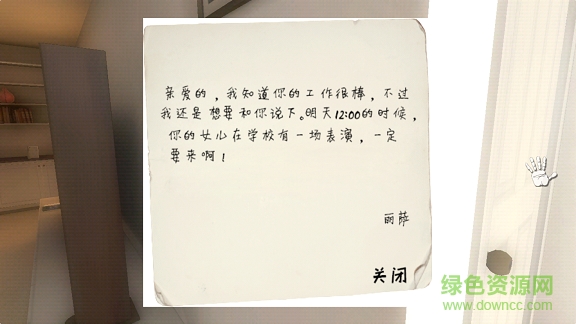 亲爱的，我知道你的工作很棒，不过
我还是想要和你说下。明天12:00的时候，
你的女儿在学校有一场表演，一定
要来啊！
丽萨
关闭
绿色资源网
www.downcc.com